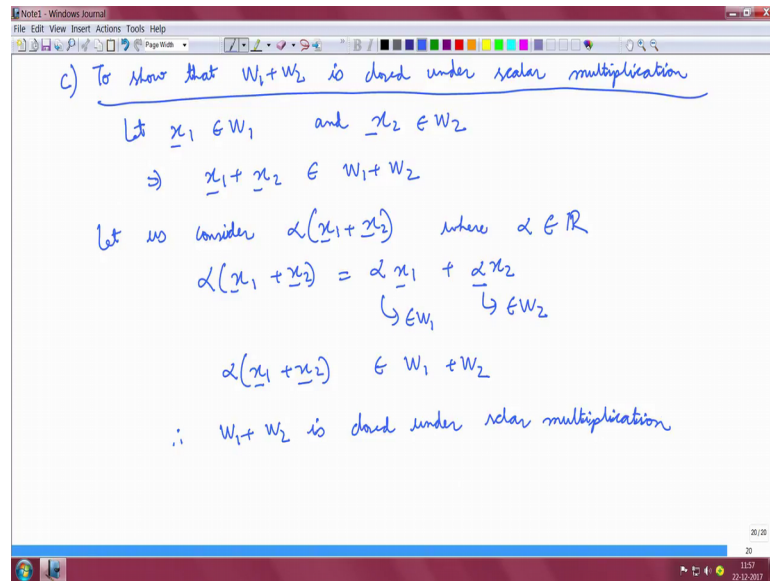 Note1 - Windows Journal
File Edit View Insert Actions Tools Help
Page Width
c) To show that W₁+W₂ is closed under scalar multiplication
Let x₁ ∈ W₁ and x₂ ∈ W₂
⇒ x₁+x₂ ∈ W₁+W₂
Let us consider α(x₁+x₂) where α ∈ ℝ
α(x₁+x₂) = αx₁ + αx₂
↳ ∈W₁ ↳ ∈W₂
α(x₁+x₂) ∈ W₁+W₂
∴ W₁+W₂ is closed under sclar multiplication
20/20
20
11:57
22-12-2017